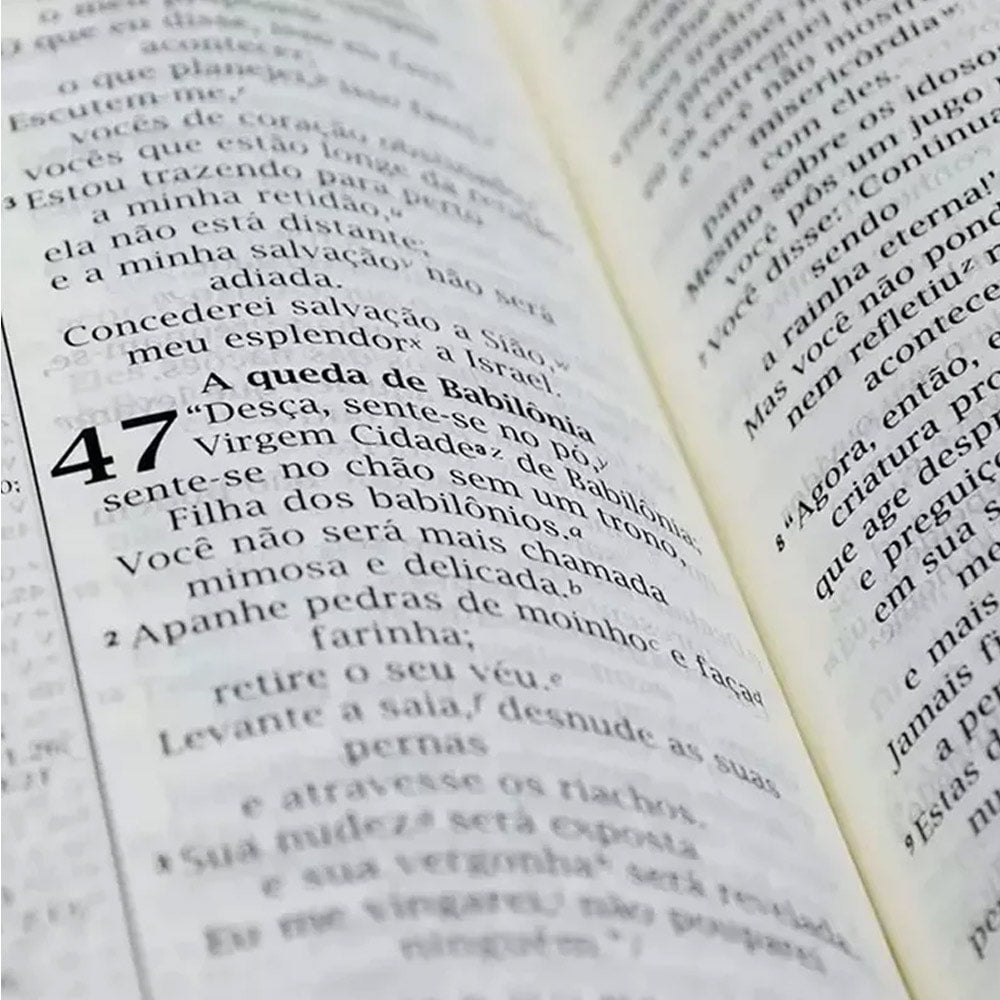 O que eu disse, isso eu farei
acontecer;
o que planejei, isso farei.
Escutem-me,
vocês de coração obstinado,
vocês que estão longe da retidão.
3 Estou trazendo para perto
a minha retidão,u
ela não está distante;
e a minha salvaçãov não será
adiada.
Concederei salvação a Sião,w
meu esplendorx a Israel.
A queda de Babilônia
47 “Desça, sente-se no pó,y
Virgem Cidadeaz de Babilônia;
sente-se no chão sem um trono,
Filha dos babilônios.a
Você não será mais chamada
mimosa e delicada.b
2 Apanhe pedras de moinhoc e façad
farinha;
retire o seu véu.e
Levante a saia,f desnude as suas
pernas
e atravesse os riachos.
3 Sua nudezg será exposta
e sua vergonhah será revelada.
Eu me vingarei,i não pouparei
ninguém.”j
entreguei
e você não mostrou
misericórdia
para com eles.
Mesmo sobre os idosos
você pôs um jugo
7 Você disse: ‘Continua
sendo
a rainha eterna!’
Mas você não pond
nem refletiuz n
acontece
8 “Agora, então, e
criatura pro
que age despr
e preguiç
em sua s
me
e mais
Jamais fi
a per
9 Estas d
nu